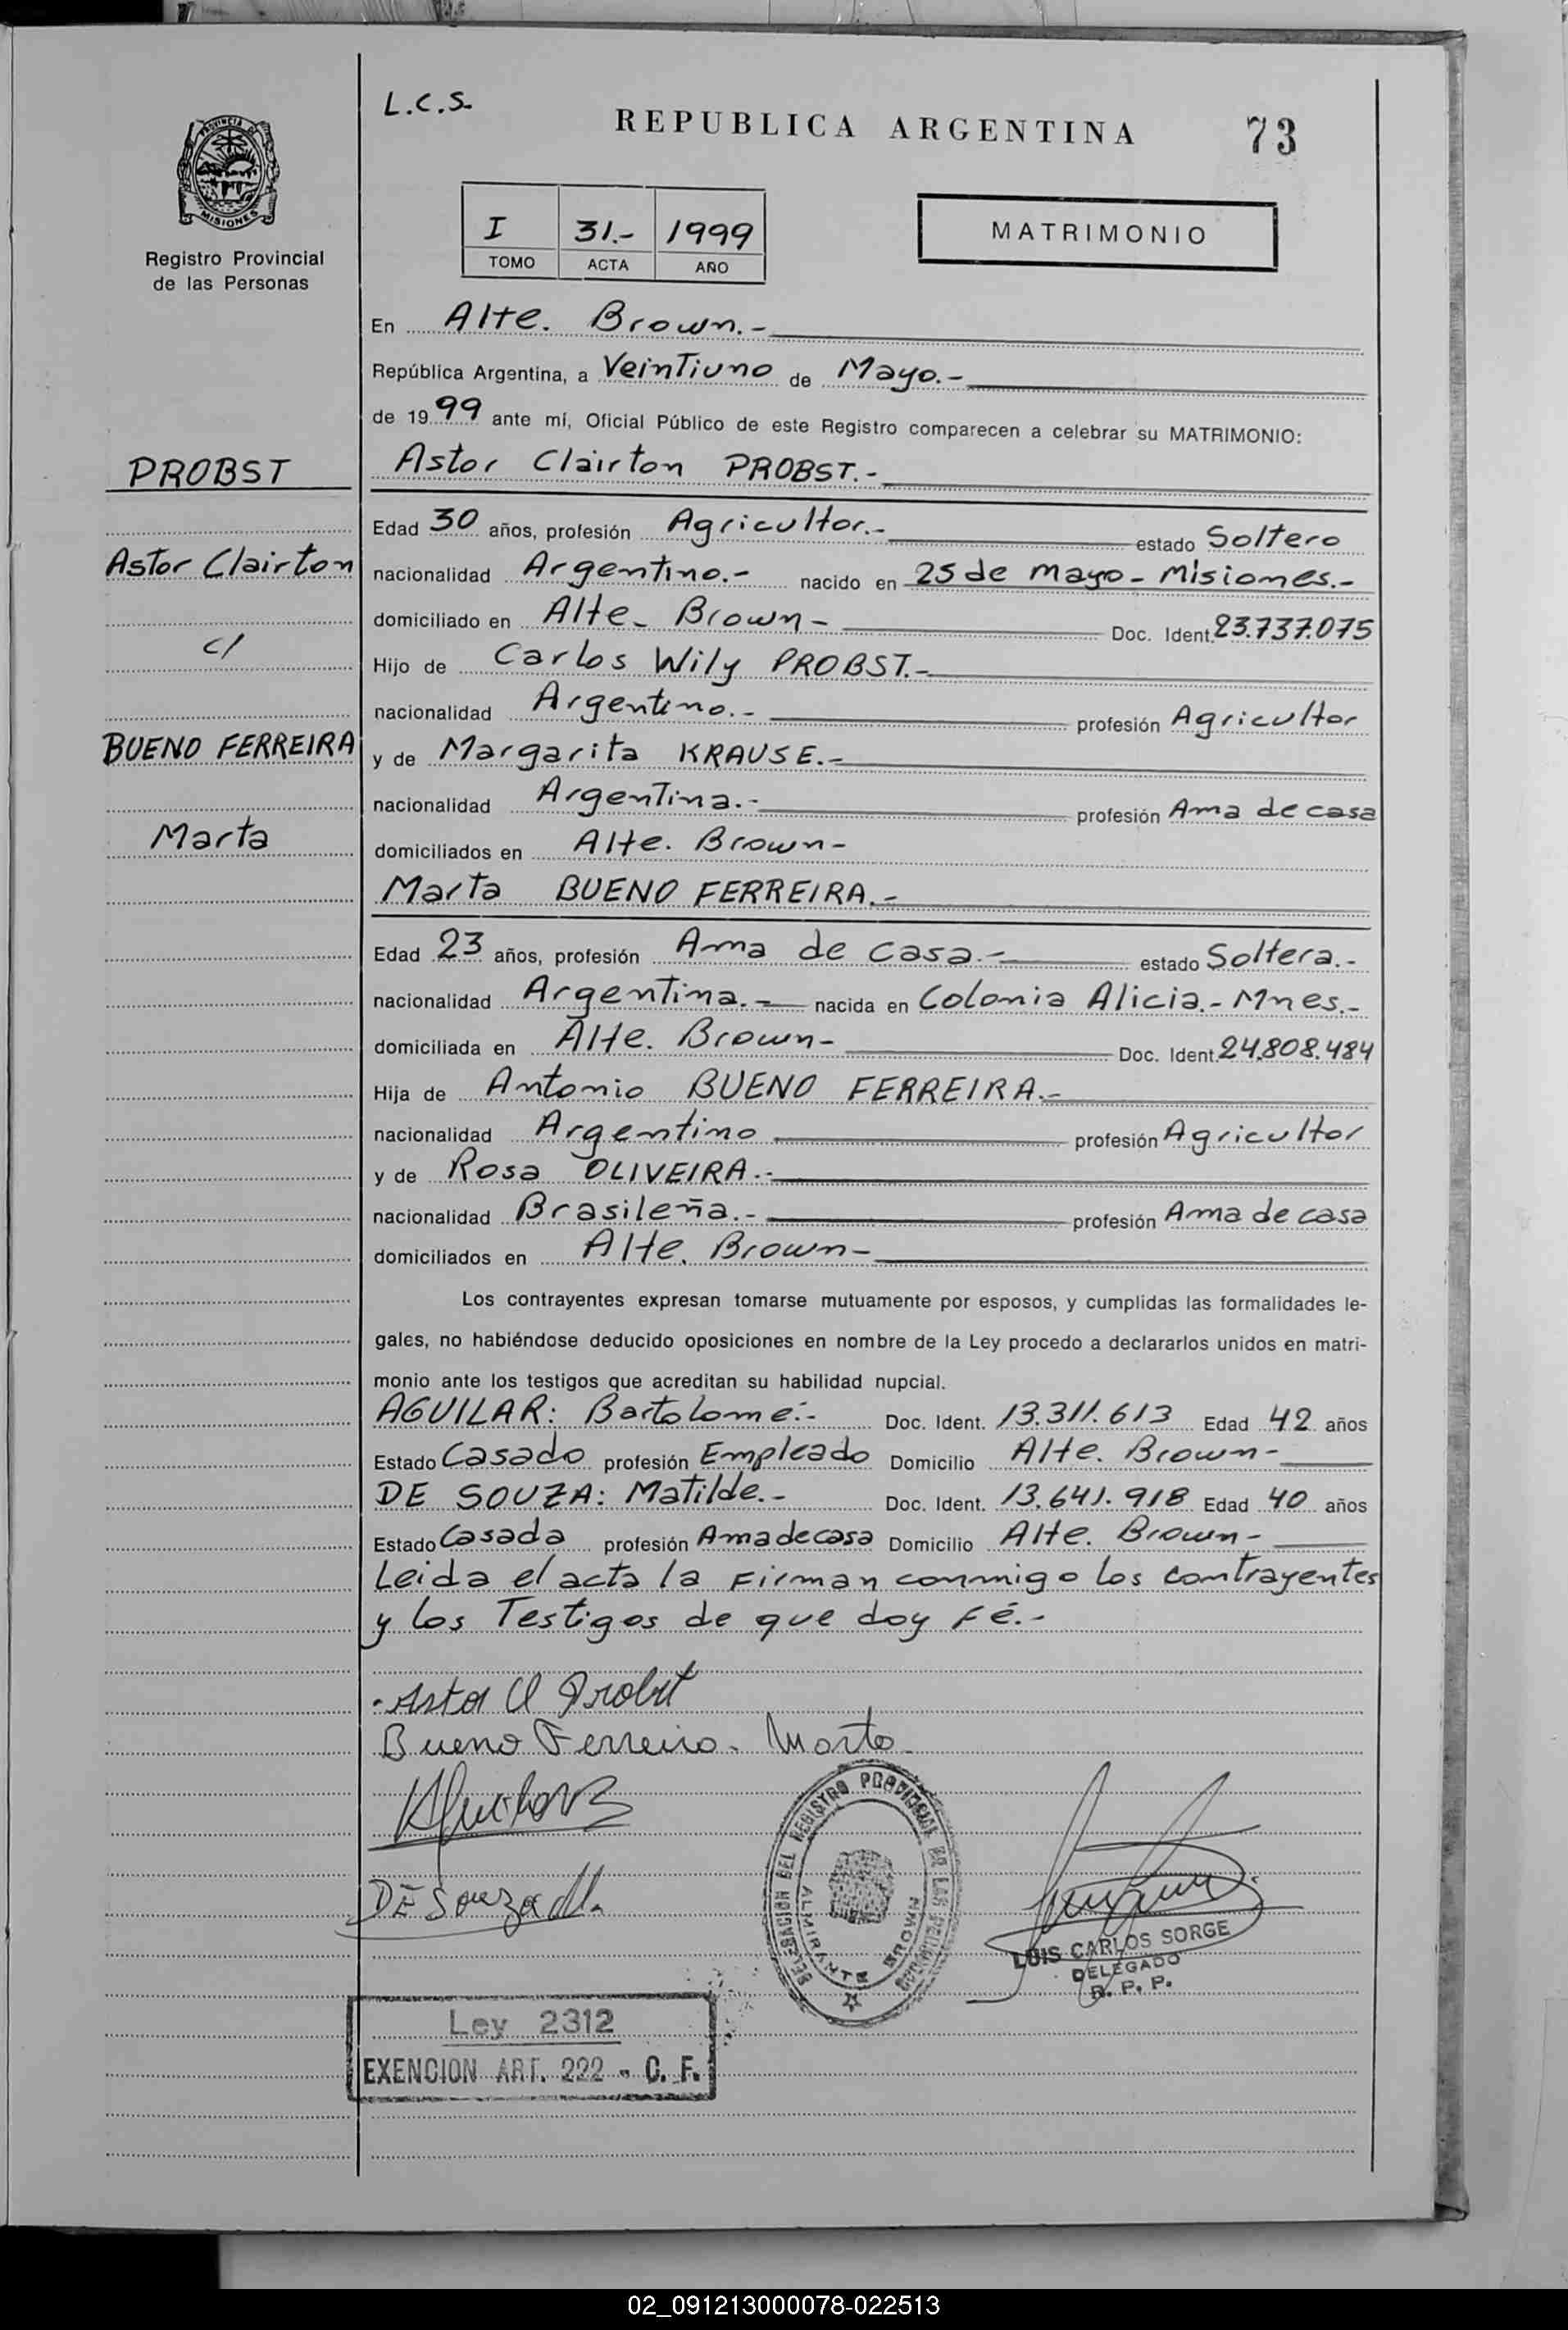 L.C.S.
REPUBLICA ARGENTINA 73
PROVINCIA DE
MISIONES
Registro Provincial
de las Personas
I 31.- 1999
TOMO ACTA AÑO
MATRIMONIO
En Alte. Brown.-
República Argentina, a VeinTiuno de Mayo.-
de 1999 ante mí, Oficial Público de este Registro comparecen a celebrar su MATRIMONIO:
PROBST
Astor Clairton PROBST.-
Edad 30 años, profesión Agricultor.- estado Soltero
Astor Clairton
nacionalidad Argentino.- nacido en 25 de mayo - Misiones.-
domiciliado en Alte. Brown - Doc. Ident. 23.737.075
c/
Hijo de Carlos Wily PROBST.-
nacionalidad Argentino.- profesión Agricultor
BUENO FERREIRA
y de Margarita KRAUSE.-
nacionalidad Argentina.- profesión Ama de casa
Marta
domiciliados en Alte. Brown -
Marta BUENO FERREIRA.-
Edad 23 años, profesión Ama de casa.- estado Soltera.-
nacionalidad Argentina.- nacida en Colonia Alicia.- Mnes.-
domiciliada en Alte. Brown - Doc. Ident. 24.808.484
Hija de Antonio BUENO FERREIRA.-
nacionalidad Argentino profesión Agricultor
y de Rosa OLIVEIRA.-
nacionalidad Brasileña.- profesión Ama de casa
domiciliados en Alte. Brown -
Los contrayentes expresan tomarse mutuamente por esposos, y cumplidas las formalidades le-
gales, no habiéndose deducido oposiciones en nombre de la Ley procedo a declararlos unidos en matri-
monio ante los testigos que acreditan su habilidad nupcial.
AGUILAR: Bartolomé.- Doc. Ident. 13.311.613 Edad 42 años
Estado Casado profesión Empleado Domicilio Alte. Brown -
DE SOUZA: Matilde.- Doc. Ident. 13.641.918 Edad 40 años
Estado Casada profesión Ama de casa Domicilio Alte. Brown -
Leida el acta la Firman conmigo los contrayentes
y los Testigos de que doy Fé.-
Astor Cl Probst
Bueno Ferreira. Marta
DE Souza M.
DELEGACION DEL REGISTRO PROVINCIAL DE LAS PERSONAS
ALMIRANTE BROWN
LUIS CARLOS SORGE
DELEGADO
R. P. P.
Ley 2312
EXENCION ART. 222 - C. F.
02_091213000078-022513